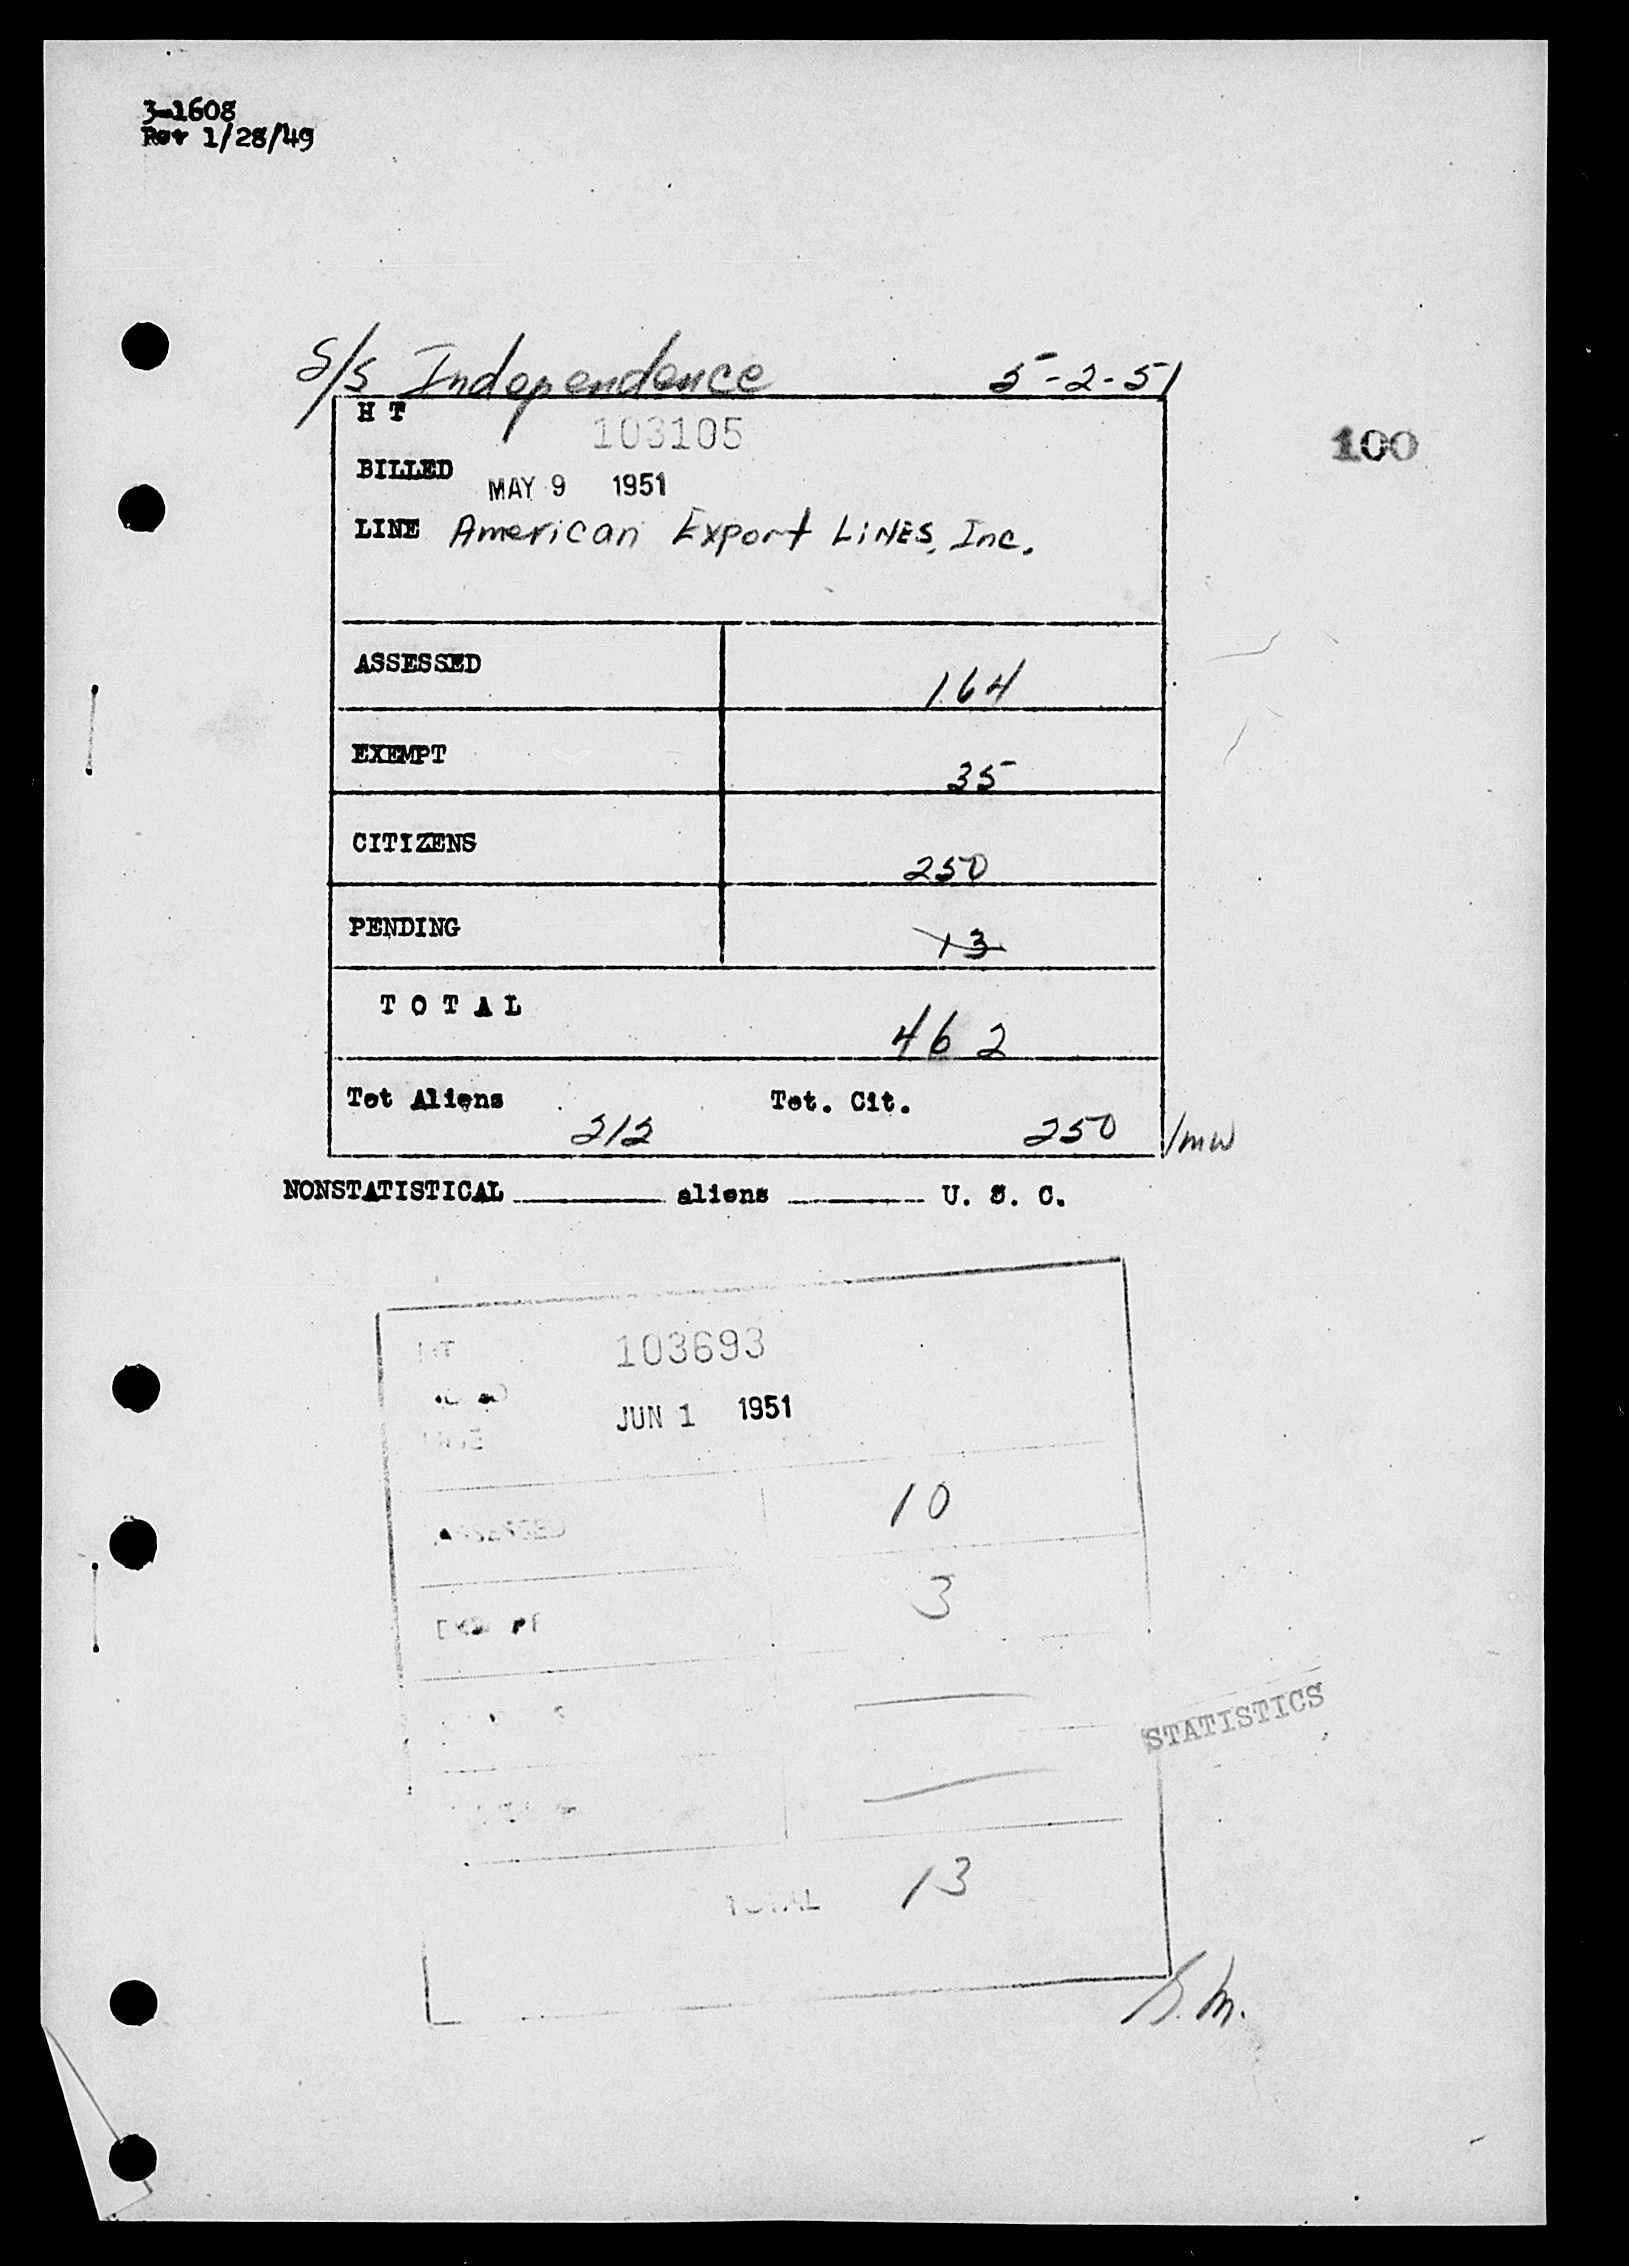 3-1608
Rev 1/28/49
S/S Independence 5-2-51
H T 103105
100
BILLED MAY 9 1951
LINE American Export LINES, Inc.
ASSESSED 164
EXEMPT 35
CITIZENS 250
PENDING 13
T O T A L 462
Tot Aliens 212 Tot. Cit. 250 /mw
NONSTATISTICAL aliens U. S. C.
103693
JUN 1 1951
10
3
STATISTICS
TOTAL 13